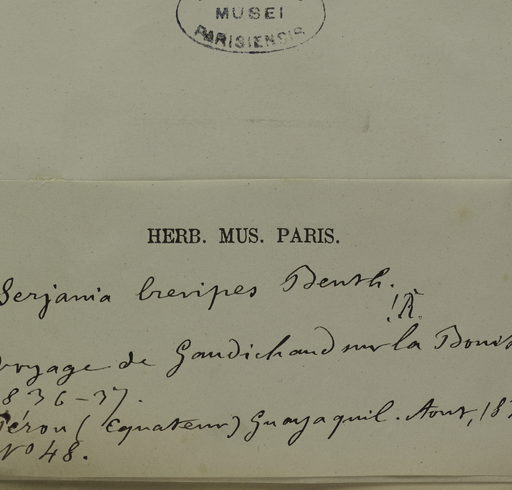 MUSEI
PARISIENSIS
HERB. MUS. PARIS.
Serjania brevipes Benth.
! R.
voyage de Gaudichaud sur la Bonit
836-37.
Pérou (Equateur) Guayaquil. Aout, 18
No 48.